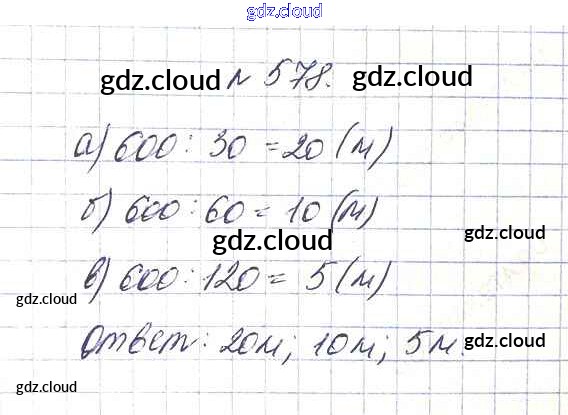 gdz.cloud
gdz.cloud № 578. gdz.cloud
а) 600 : 30 = 20 (м)
б) 600 : 60 = 10 (м)
gdz.cloud gdz.cloud
в) 600 : 120 = 5 (м)
gdz.cloud
Ответ: 20м; 10м; 5м.
gdz.cloud
gdz.cloud gdz.cloud